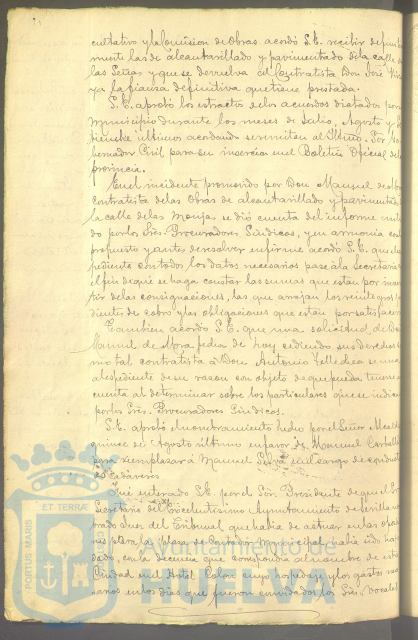 cultativo y la Comision de Obras acordó S.E. recibir definiti
mente las de alcantarillado y pavimentado de la calle
las Señas y que se devuelva al Contratista Don José
ya la fianza definitiva que tiene prestada.
S.E. aprobó los extractos de los acuerdos dictados por
Municipio durante los meses de Julio, Agosto y
tiembre últimos acordando se remitan al Iltmo. Sor.
bernador Civil para su insercion en el Boletin Oficial de
provincia.
En el incidente promovido por Don Manuel de
contratista de las Obras de alcantarillado y pavimentado
la calle de las Monjas se dió cuenta del informe
do por los Sres. Procuradores Síndicos, y en armonía con
propuesto y antes de resolver en firme acordó S.E. que el
pediente con todos los datos necesarios pase á la Secretaría
el fin de que se haga constar las sumas que están por
tir de las consignaciones, las que arrojan los
dientes de cobro y las obligaciones que están por satisfacer
Tambien acordó S.E. que una solicitud de Don
Manuel de Mora fecha de hoy cediendo sus derechos
mo tal contratista á Don Antonio Tellechea se una
al espediente de su razon con objeto de que pueda tenerse
cuenta al determinar sobre los particulares que se indican
por los Sres. Procuradores Síndicos.
S.E. aprobó el nombramiento hecho por el Señor Alcalde
quince de Agosto último en favor de Manuel Carballo
para reemplazar á Manuel Silva en el cargo de conductor
de Cadáveres
Fué enterado S.E. por el Sor. Presidente de que el
Secretario del Excelentísimo Ayuntamiento de Sevilla
mado Juez del Tribunal que habia de actuar en las oposi
nes para la plaza de Contador Municipal habia sido
dado, en la decencia que correspondia al nombre de esta
Ciudad en el Hotel Colon cuyo hospedaje y los gastos
sarios en los dias que fueron convidados los Sres. vocales
PORTUS MARIS
ET TERRAE
Ayuntamiento de
HUELVA